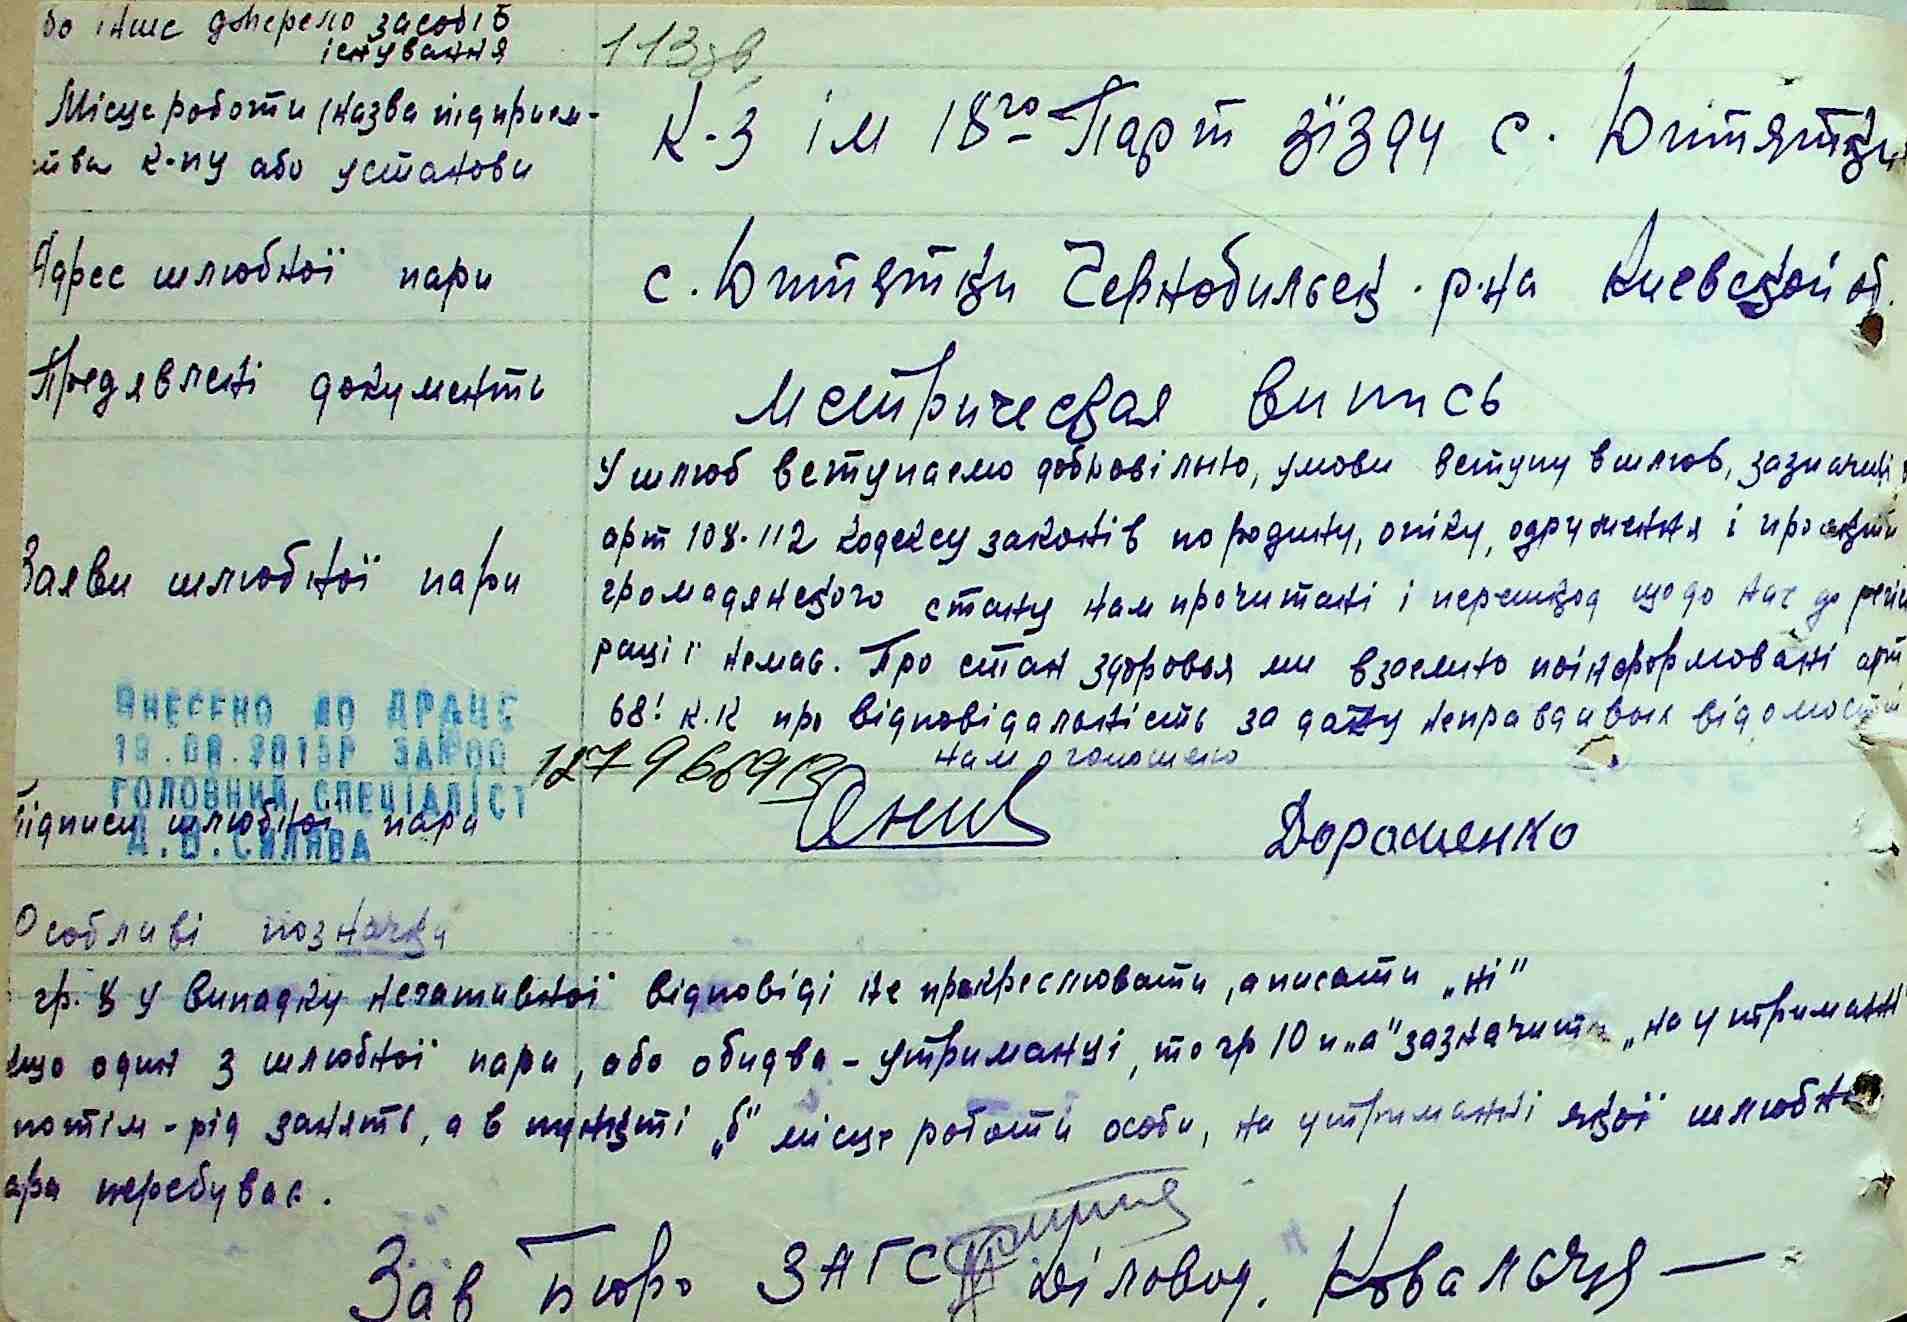 бо інше джерело засобів
існування
113зв
Місце роботи (назва підприєм-
ства к-пу або установи
К-з ім 18го Парт зїзду с.
Адрес шлюбної пари
с. Чернобильск. р-на Киевской об.
Предявлені документи
Метрическая випись
У шлюб вступаємо добровільно, умови вступу в шлюб, зазначені
Заяви шлюбної пари
арт 108-112 кодексу законів по родину, опіку, одруження і про
громадянського стану нам прочитані і перешкод щодо нас до
рації немає. Про стан здоровья ми взаємно поінформовані арт
68! К.К про відповідальність за дачу неправдивых відомостей
нам оголошено
ВНЕСЕНО ДО ДРАЦС
ГОЛОВНИЙ СПЕЦІАЛІСТ
Підписи шлюбної пари
Дорошенко
Особливі позначки
гр. 8 у випадку негативної відповіді не прокреслювати, а писати „ні"
кщо один з шлюбної пари, або обидва - утриманці, то гр 10 п „а" зазначити „на утриманні
потім - рід занять, а в пункті „б" місце роботи особи, на утриманні якої шлюбна
ара перебуває.
Зав Бюро ЗАГС Діловод.